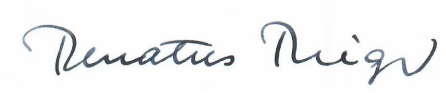 Renatus Rieger